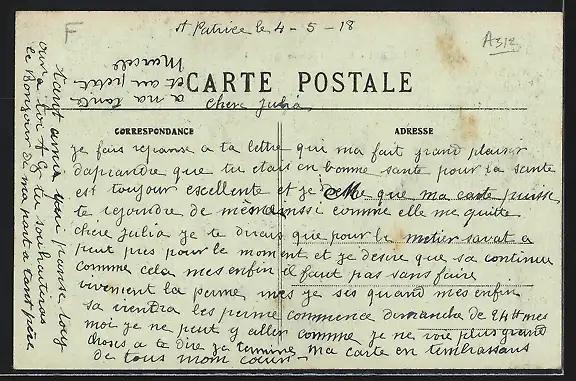 St Patrice le 4 - 5 - 18
F
A312
CARTE POSTALE
Chere Julia
CORRESPONDANCE
ADRESSE
je fais reponse a ta lettre qui ma fait grand plaisir
daprandre que tu etais en bonne sante pour la sante
est toujour excellente et je desire que ma carte puisse
te rejoindre de même aussi comme elle me quitte.
chere Julia je te dirais que pour le metier sava t a
peut pres pour le moment et je desire que sa continue
comme cela mes enfin il faut pas sans faire
vivement la perme mes je sis quand mes enfin
sa viendra les perme commence dimanche de 24H mes
moi je ne peut y aller comme je ne voie plus grand
choses a te dire je termine ma carte en timbrassans
de tous mom coeur
tant amie qui panse
a toi tu souhaitras
le Bonjour de ma part a tant père
a ma tante
et au petit
Marcele